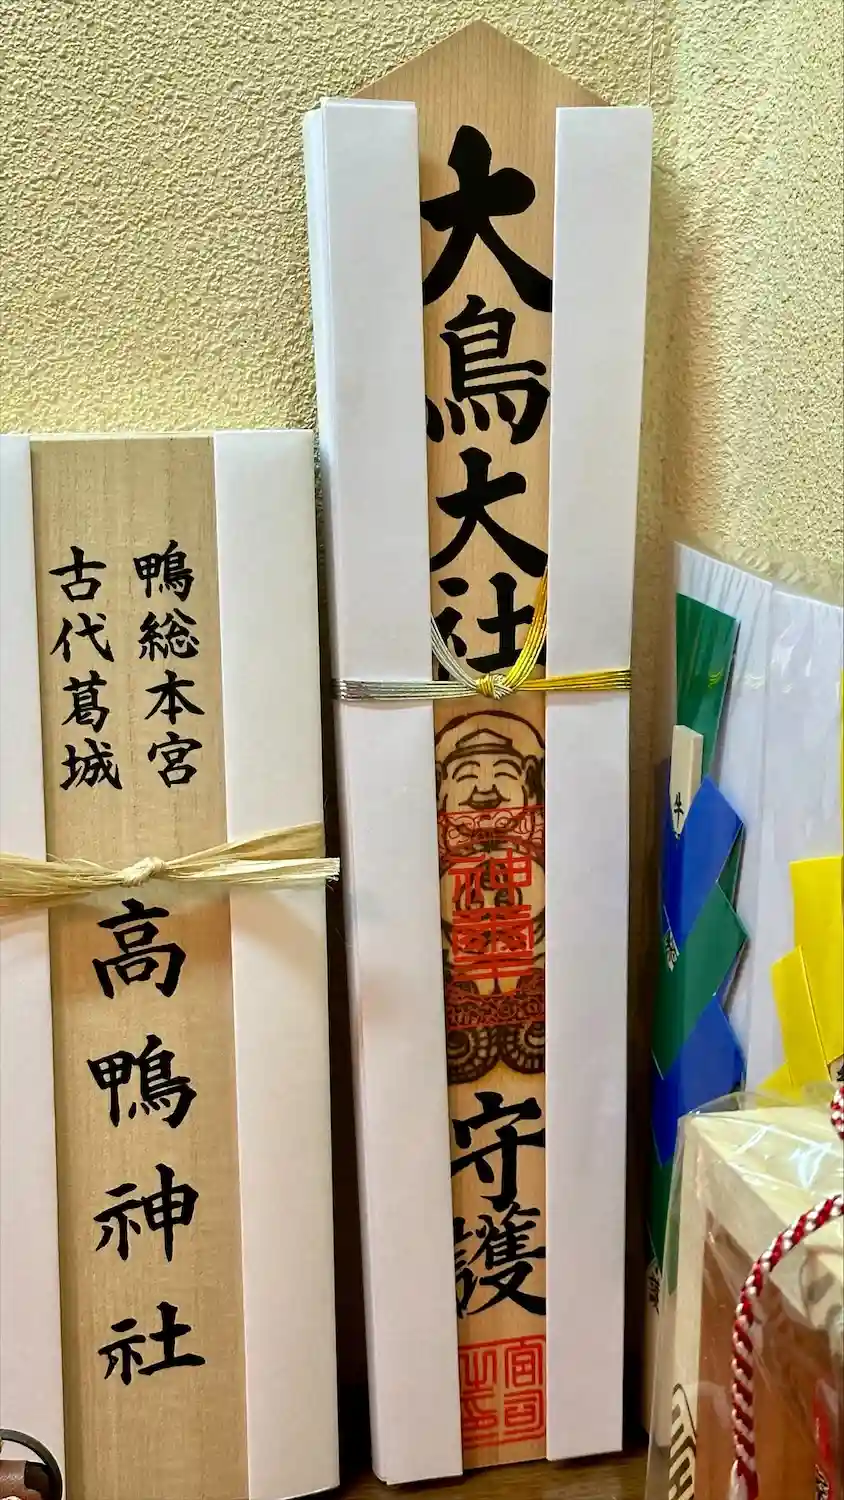 大鳥大社
神璽
守護
宮司之印
鴨総本宮
古代葛城
高鴨神社